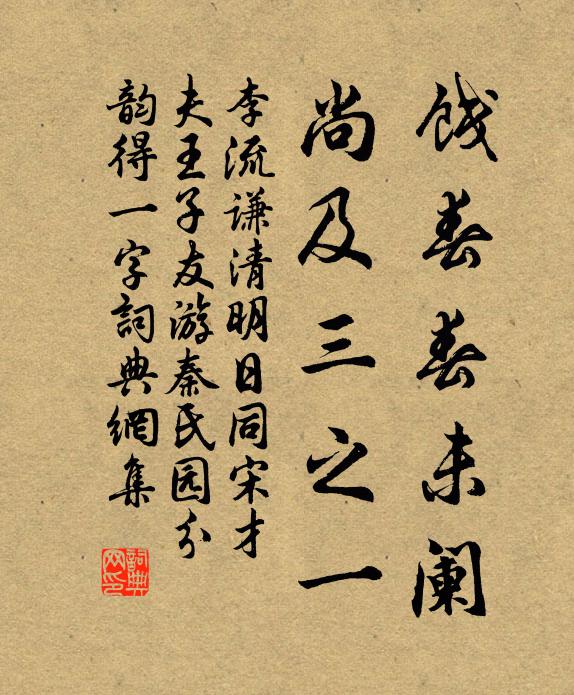 饯春春未阑
尚及三之一
李流谦清明日同宋才
夫王子友游秦民园分
韵得一字詞典網集
詞典网印